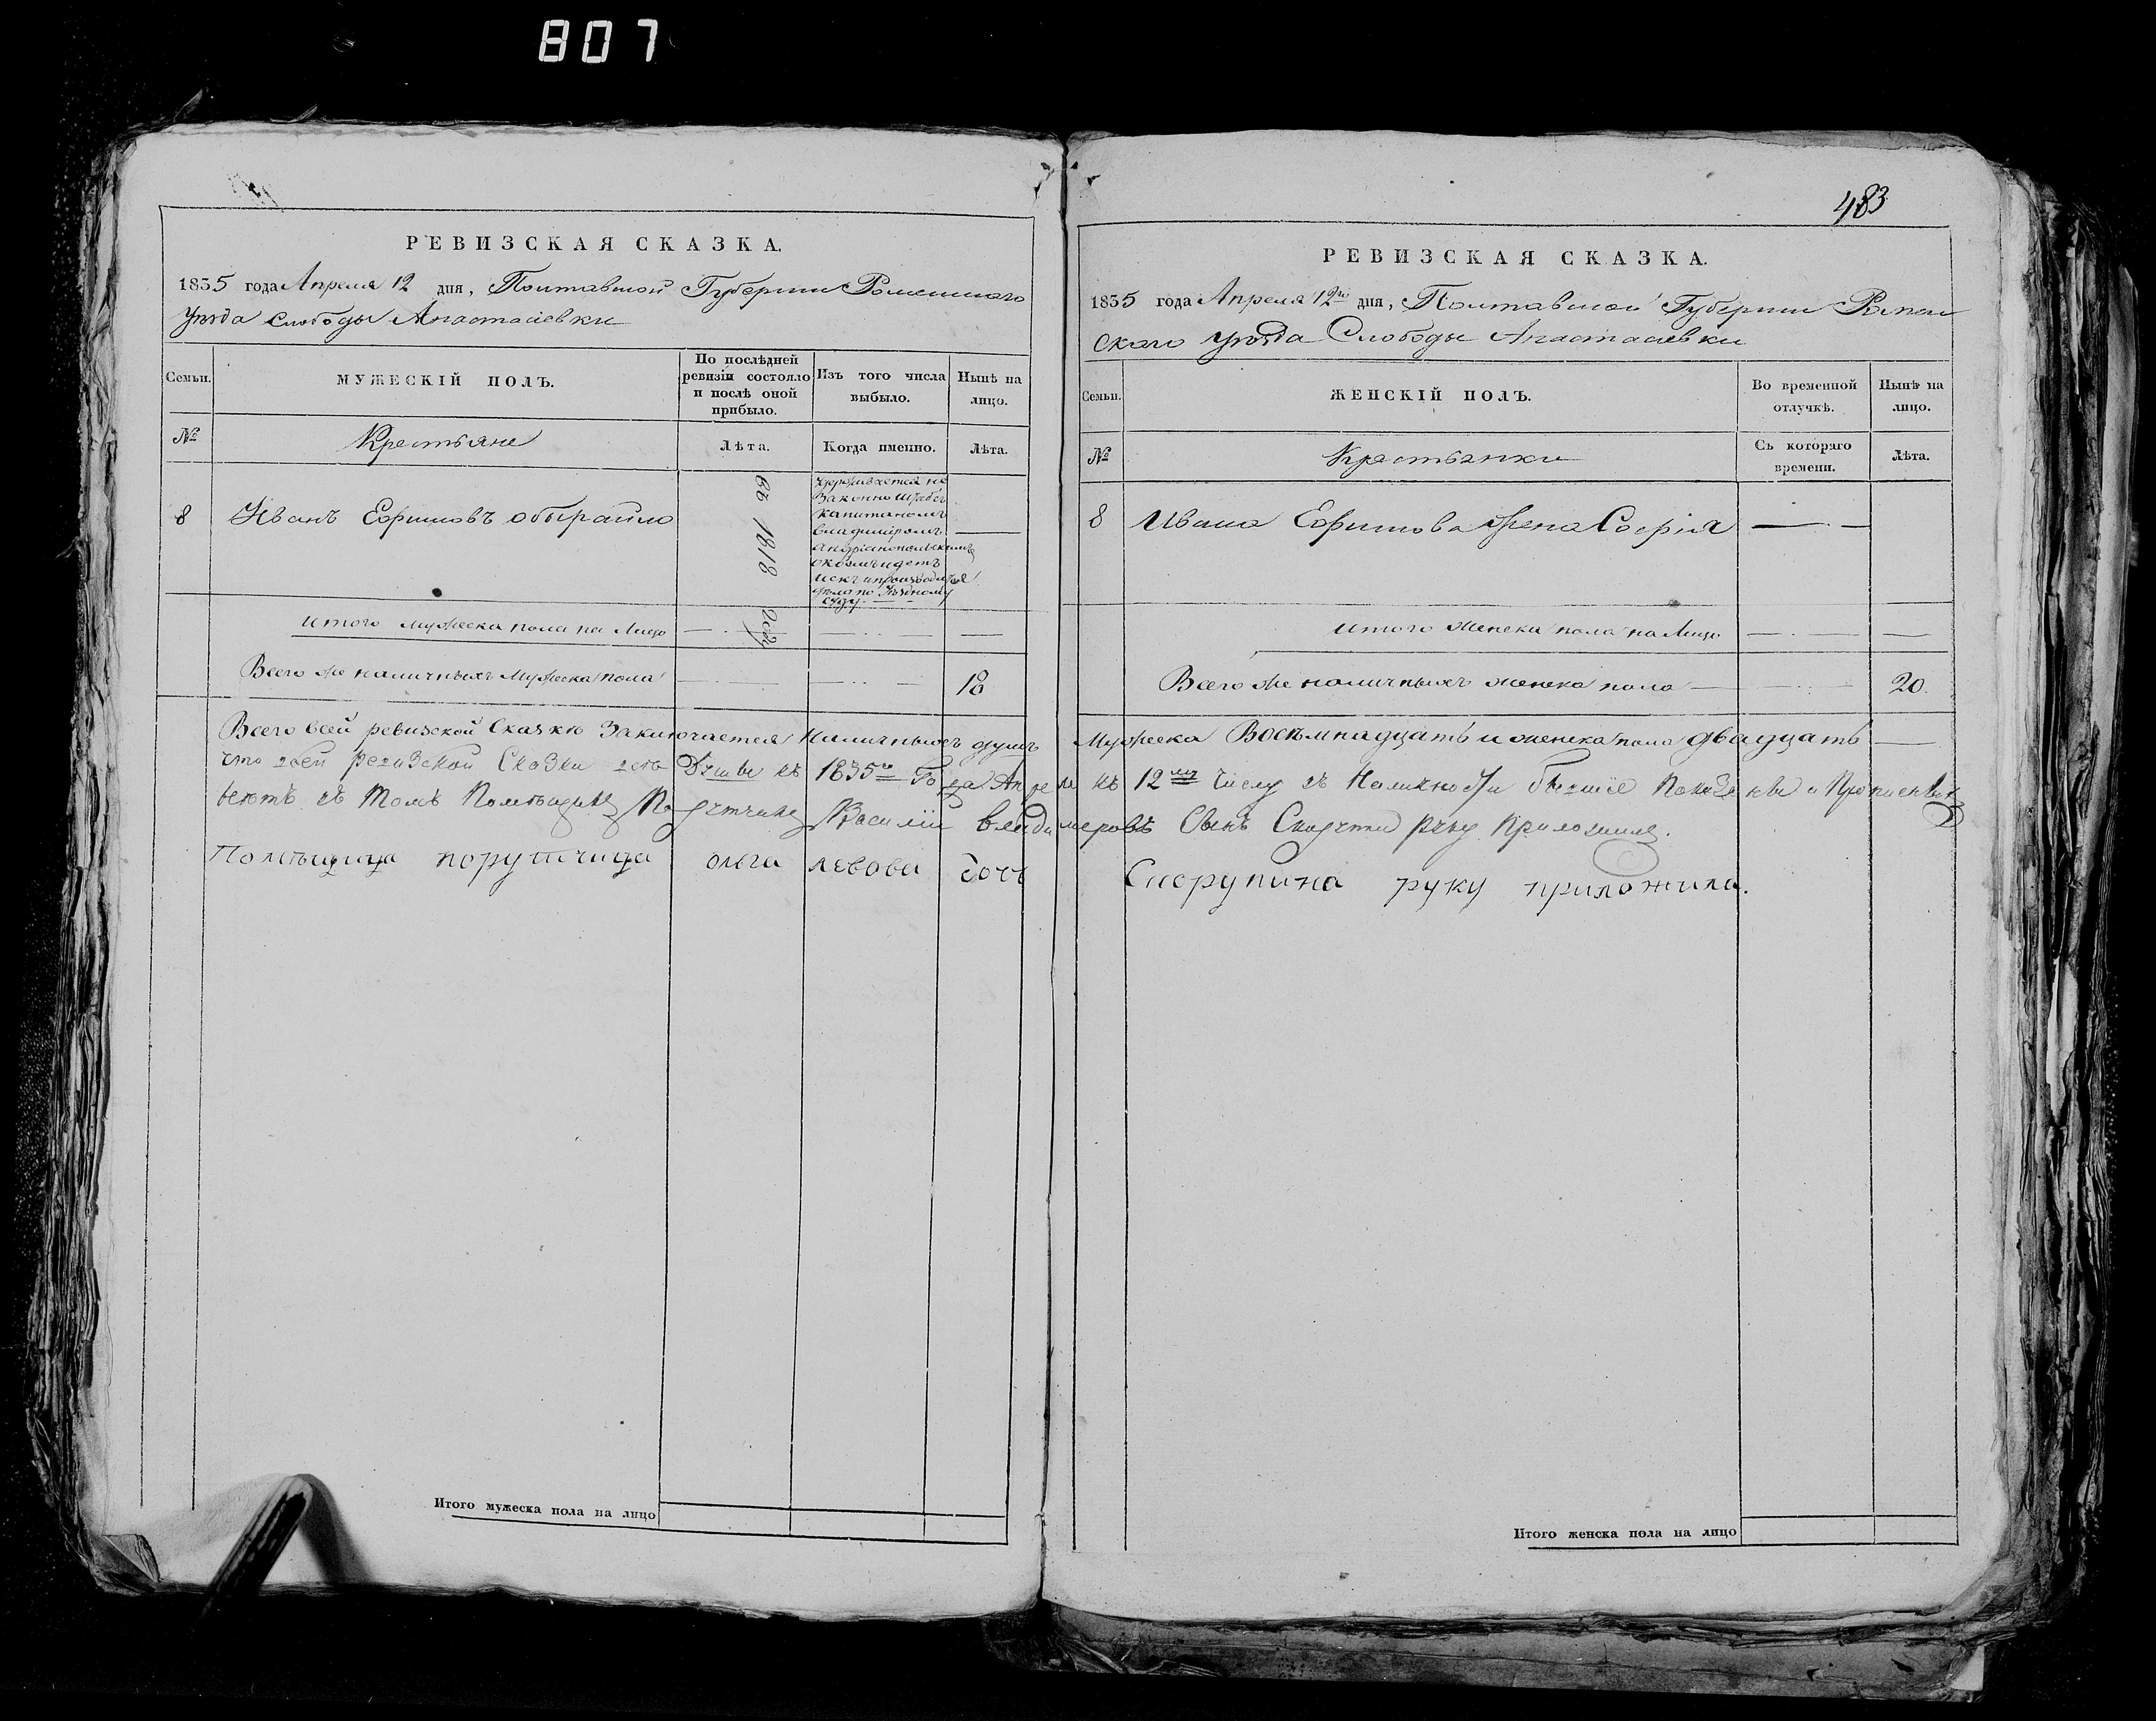 807
РЕВИЗСКАЯ СКАЗКА.
1835 года Апреля 12 дня, Полтавской Губернии Роменского
уѣзда Слободы Анастасіевки
Семьи.
МУЖЕСКІЙ ПОЛЪ.
По послѣдней ревизіи состояло и послѣ оной прибыло.
Изъ того числа выбыло.
Нынѣ на лицо.
№
Крестьяне
Лѣта.
Когда именно.
Лѣта.
8
Иванъ Ефимовъ
въ 1818 году
удерживается не
законно Штабсъ
капитаномъ
владиміромъ
о комъ идетъ
искъ и производится
дѣло по Уѣздному
суду
итого мужеска пола на Лицо
Всего же наличныхъ мужеска пола
18
Всего всей ревизской Сказкѣ Заключается наличныхъ душъ
что сей ревизской Сказки Души къ 1835 Года Апреля
въ томъ Василій Владимеровъ
Помѣщица порутчица ольга лвова дочь
Итого мужеска пола на лицо
483
РЕВИЗСКАЯ СКАЗКА.
1835 года Апреля 12го дня, Полтавской Губерніи Ромен
ского уѣзда Слободы Анастасіевки
Семьи.
ЖЕНСКІЙ ПОЛЪ.
Во временной отлучкѣ.
Нынѣ на лицо.
№
Крестьянки
Съ котораго времени.
Лѣта.
8
Ивана Ефимова жена Софія
итого женска пола на Лицо
Всего же наличныхъ женска пола
20.
Мужеска Восѣмнадцать и женска пола двадцать
къ 12му числу въ Наличности бывшіе
Сынъ руку приложилъ.
руку приложила.
Итого женска пола на лицо